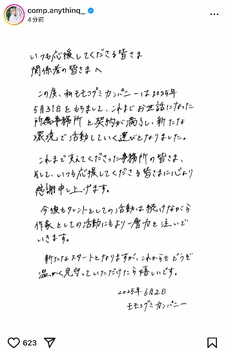 comp.anythinq_
4分前
いつも応援してくださる皆さま
関係者の皆さまへ
この度、私モモコグミカンパニーは2025年
5月31日をもちまして、これまでお世話になった
所属事務所と契約が満了し、新たな
環境で活動していく運びとなりました。
これまで支えてくださった事務所の皆さま、
そして、いつも応援してくださる皆さまに心より
感謝申し上げます。
今後もタレントとしての活動は続けながら
作家としての活動にもより一層力を注いで
いきます。
新たなスタートとなりますが、これからもどうぞ
温かく見守っていただけたら嬉しいです。
2025年6月2日
モモコグミカンパニー
623